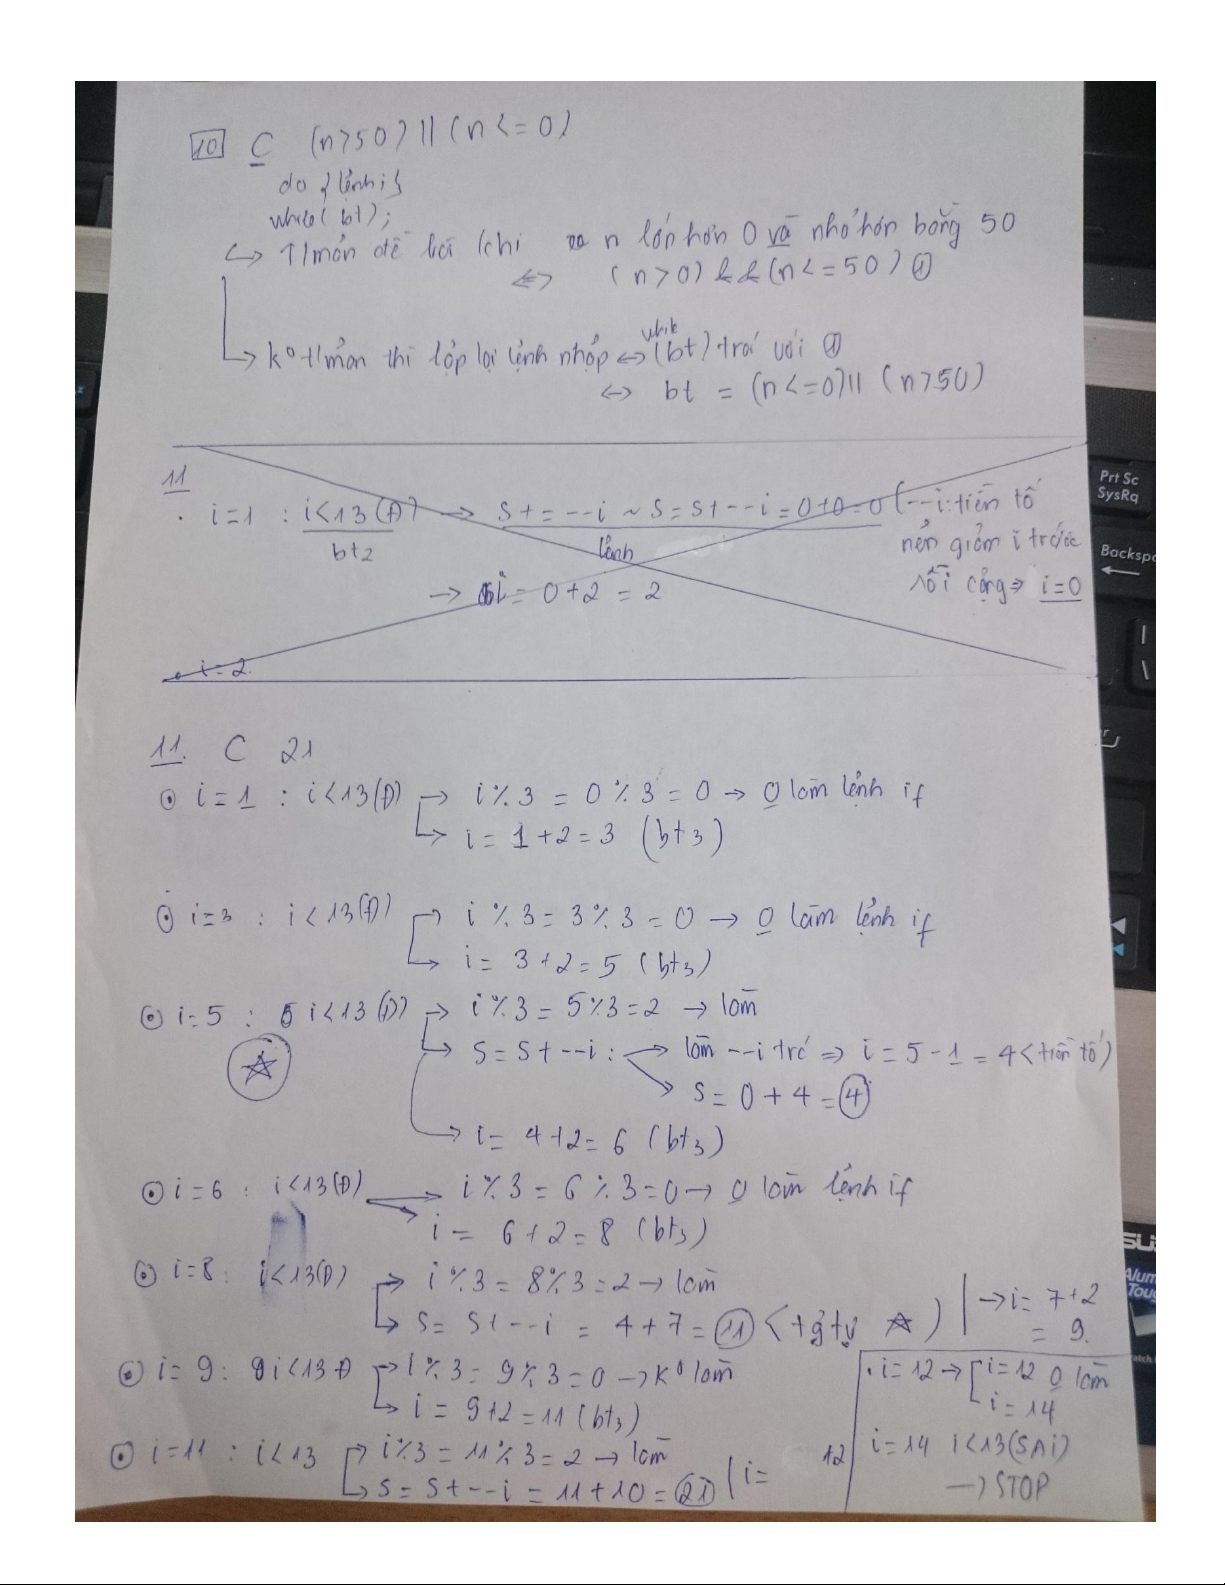 10 C (n>50) || (n <= 0)
do { lệnh; }
while( bt);
↳ T/mãn đề bài (chỉ n lớn hơn 0 và nhỏ hơn bằng 50
<=> (n > 0) && (n <= 50) ①
↳ k° t/mãn thì lặp lại lệnh nhập <-> while (bt) trái với ①
<-> bt = (n <= 0) || (n > 50)
11
. i=1 : i<13 (Đ) → S+= --i ~ S = S+ --i = 0+0=0 (--i: tiền tố
bt2 lệnh nên giảm i trước
→ i = 0+2 = 2 rồi cộng => i=0
i=2.
11. C 21
⊙ i=1 : i<13(Đ) → i % 3 = 0 % 3 = 0 → 0 làm lệnh if
↳ i = 1+2 = 3 (bt3)
⊙ i=3 : i<13(Đ) → i % 3 = 3 % 3 = 0 → 0 làm lệnh if
↳ i = 3+2 = 5 (bt3)
⊙ i=5 : i<13(Đ) → i % 3 = 5 % 3 = 2 → làm
↳ S = S+ --i : → làm --i trc => i = 5 - 1 = 4 < tiền tố )
S = 0 + 4 = 4
→ i = 4+2 = 6 (bt3)
⊙ i=6 : i<13(Đ) → i % 3 = 6 % 3 = 0 → 0 làm lệnh if
i = 6+2 = 8 (bt3)
⊙ i=8 : i<13(Đ) → i % 3 = 8 % 3 = 2 → làm
↳ S = S+ --i = 4 + 7 = 11 < tg tự ☆ ) | → i = 7+2
= 9.
⊙ i=9 : i<13 Đ → i % 3 = 9 % 3 = 0 → k° làm
↳ i = 9+2 = 11 (bt3)
⊙ i=11 : i<13 → i % 3 = 11 % 3 = 2 → làm
↳ S = S+ --i = 11+10 = 21 | i = 12
. i=12 → [ i=12 0 làm
i = 14
i=14 i<13(SAI)
→ STOP
Prt Sc
SysRq
Backsp